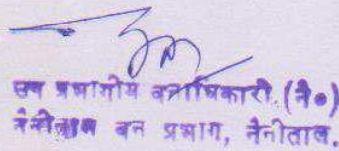 उप प्रभागीय वनाधिकारी, (नै०)
नैनीताल वन प्रभाग, नैनीताल.